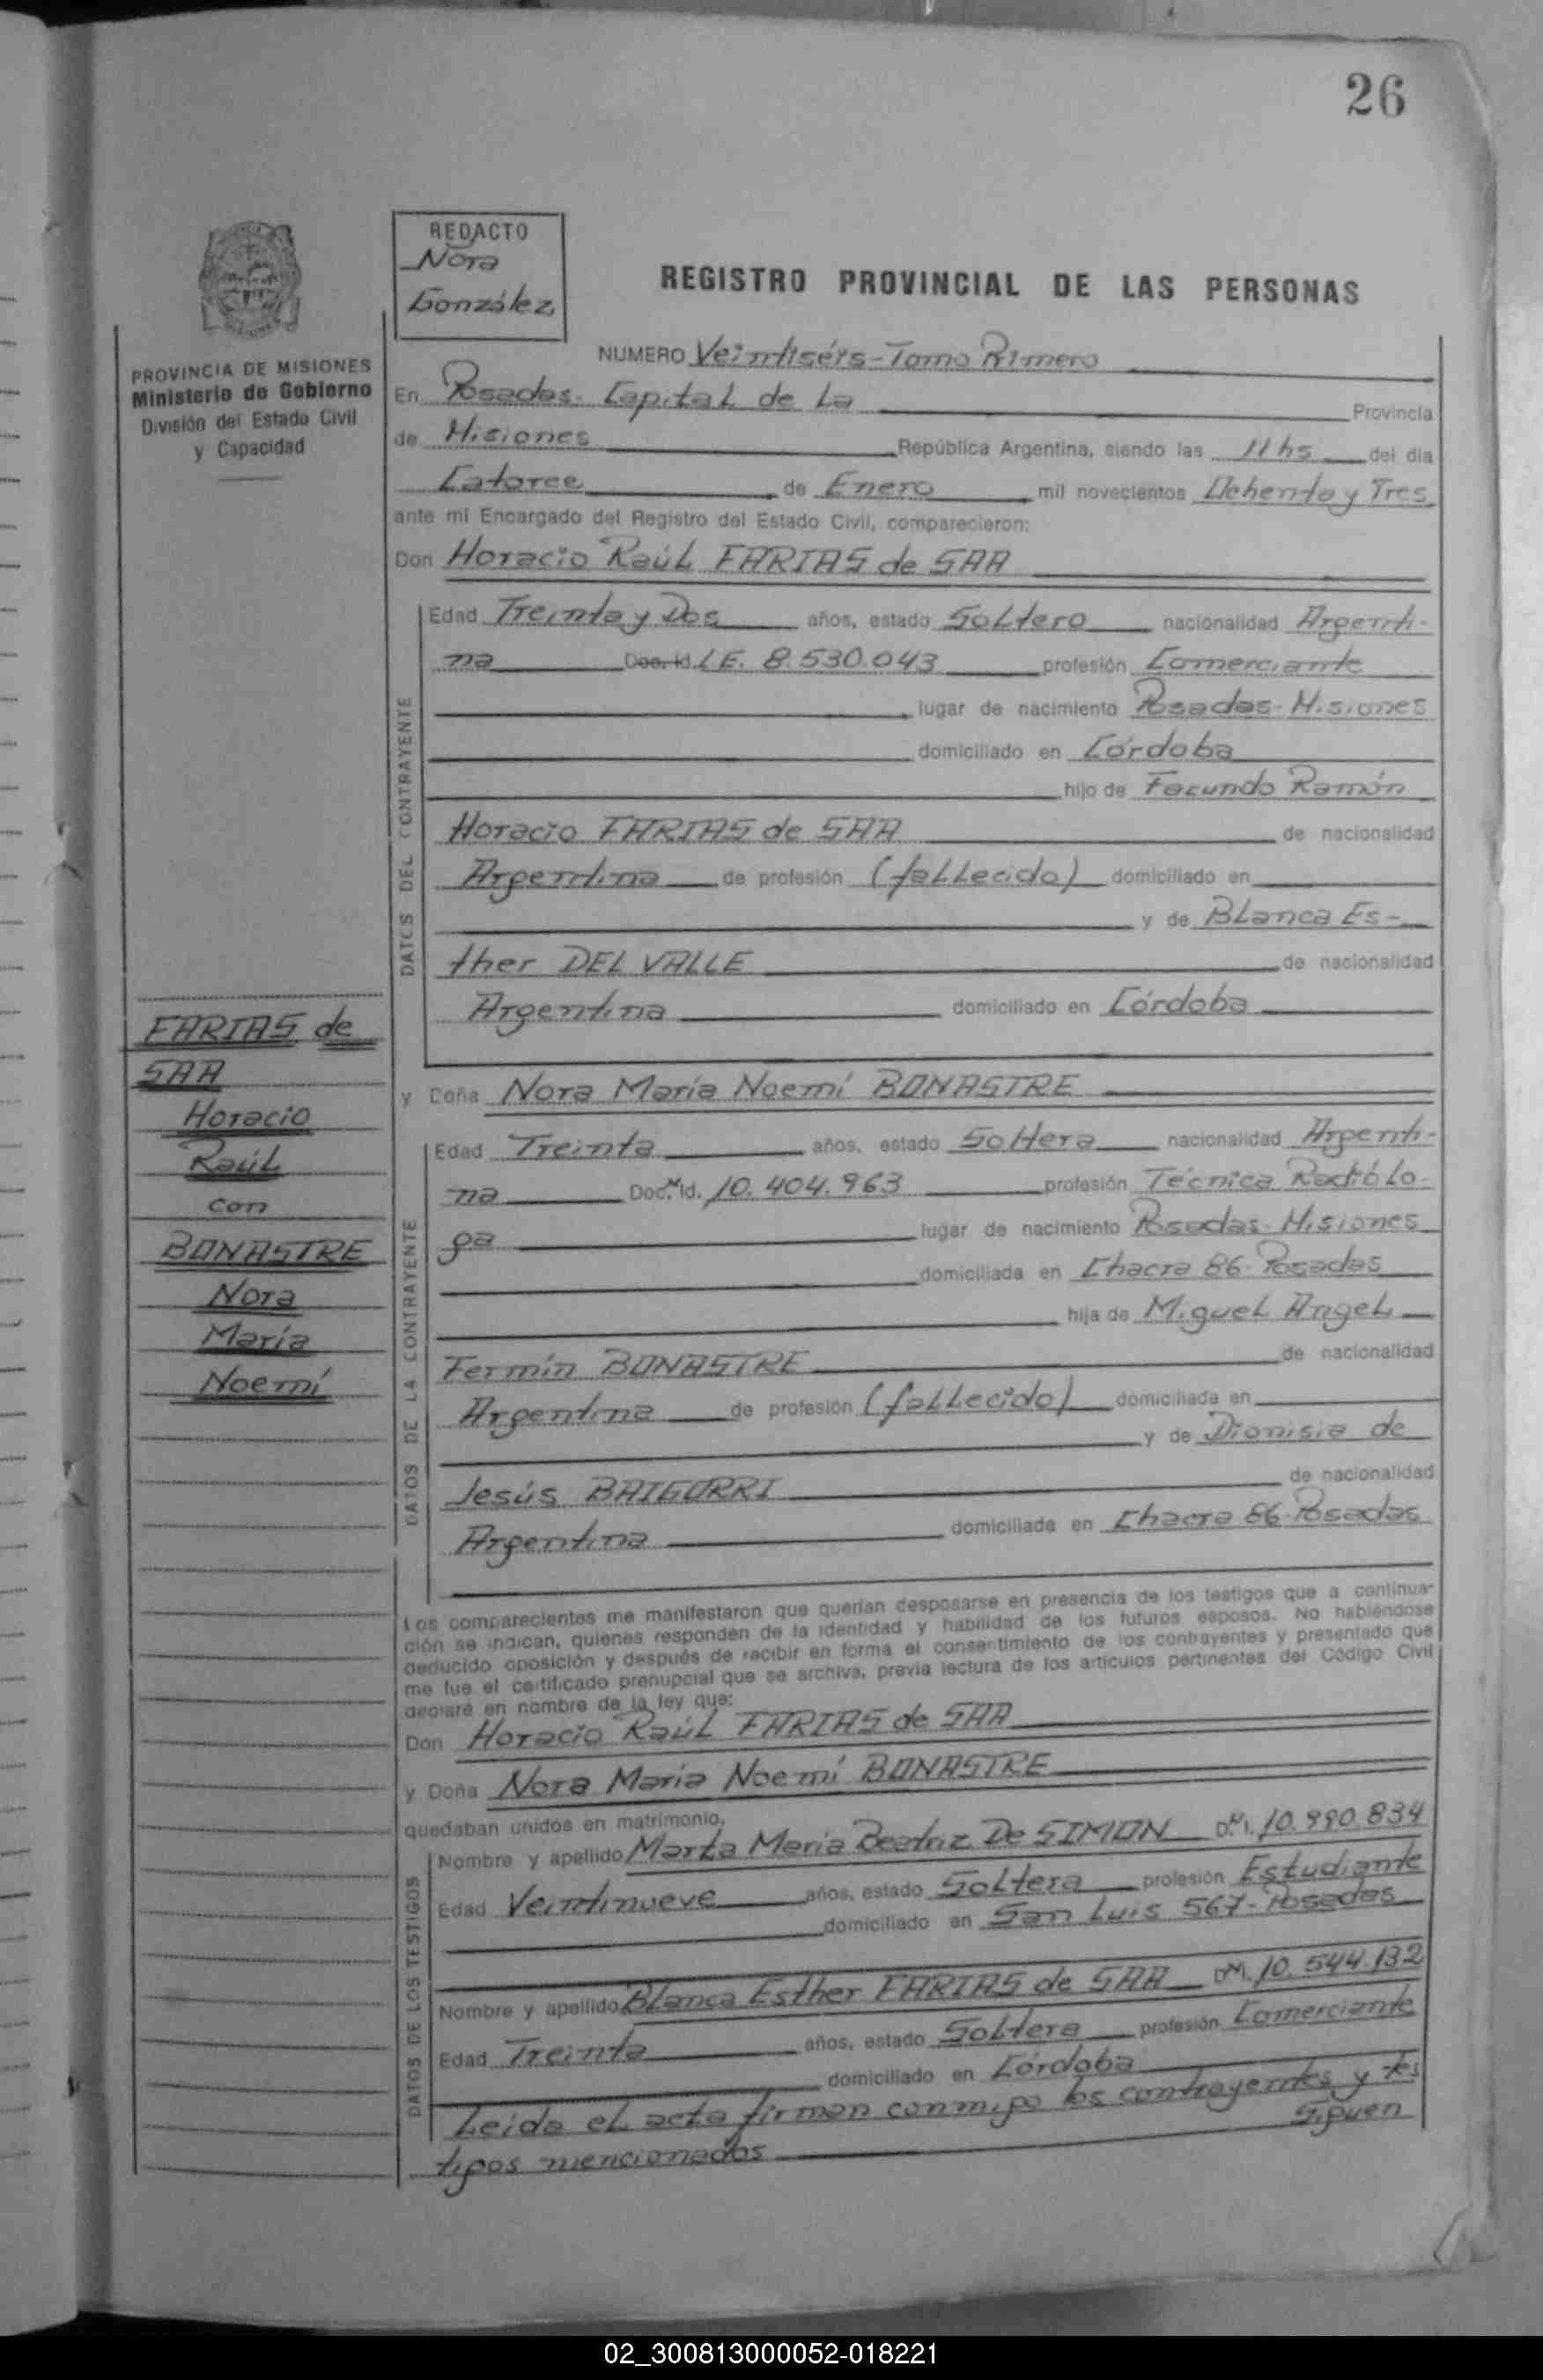 26
REDACTO
Nora
González
REGISTRO PROVINCIAL DE LAS PERSONAS
PROVINCIA DE MISIONES
Ministerio de Gobierno
División del Estado Civil
y Capacidad
NUMERO Veintiséis - Tomo Primero
En Posadas - Capital de La Provincia
de Misiones República Argentina, siendo las 11 hs del día
Catorce de Enero mil novecientos Ochenta y Tres
ante mí Encargado del Registro del Estado Civil, comparecieron:
Don Horacio Raúl FARIAS de SAA
DATOS DEL CONTRAYENTE
Edad Treinta y Dos años, estado Soltero nacionalidad Argenti-
na Doc. Id. L.E. 8.530.043 profesión Comerciante
lugar de nacimiento Posadas - Misiones
domiciliado en Córdoba
hijo de Facundo Ramón
Horacio FARIAS de SAA de nacionalidad
Argentina de profesión (fallecido) domiciliado en
y de Blanca Es-
ther DEL VALLE de nacionalidad
Argentina domiciliado en Córdoba
FARIAS de
SAA
Horacio
Raúl
con
BONASTRE
Nora
María
Noemí
y Doña Nora María Noemí BONASTRE
DATOS DE LA CONTRAYENTE
Edad Treinta años, estado Soltera nacionalidad Argenti-
na Doc. N. Id. 10.404.963 profesión Técnica Radiólo-
ga lugar de nacimiento Posadas - Misiones
domiciliada en Chacra 86 - Posadas
hija de Miguel Angel
Fermín BONASTRE de nacionalidad
Argentina de profesión (fallecido) domiciliada en
y de Dionisia de
Jesús BAIGORRI de nacionalidad
Argentina domiciliada en Chacra 86 - Posadas
Los comparecientes me manifestaron que querían desposarse en presencia de los testigos que a continua-
ción se indican, quienes responden de la identidad y habilidad de los futuros esposos. No habiéndose
deducido oposición y después de recibir en forma el consentimiento de los contrayentes y presentado que
me fue el certificado prenupcial que se archiva, previa lectura de los artículos pertinentes del Código Civil
declaré en nombre de la ley que:
Don Horacio Raúl FARIAS de SAA
y Doña Nora María Noemí BONASTRE
quedaban unidos en matrimonio.
DATOS DE LOS TESTIGOS
Nombre y apellido Marta María Beatriz De SIMON D.N.I. 10.990.834
Edad Veintinueve años, estado Soltera profesión Estudiante
domiciliado en San Luis 567 - Posadas
Nombre y apellido Blanca Esther FARIAS de SAA D.N.I. 10.544.132
Edad Treinta años, estado Soltera profesión Comerciante
domiciliado en Córdoba
Leida el acta firman conmigo los contrayentes y tes
tigos mencionados
Siguen
02_300813000052-018221